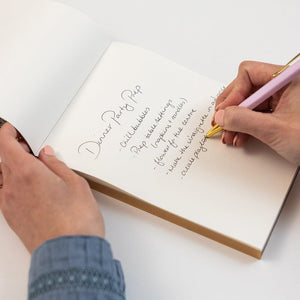 Dinner Party Prep
- Chill bubbles
- Prep table settings
(napkins + candles)
- flowers for the centre
- Make the vinaigrette in a
- Create playlist